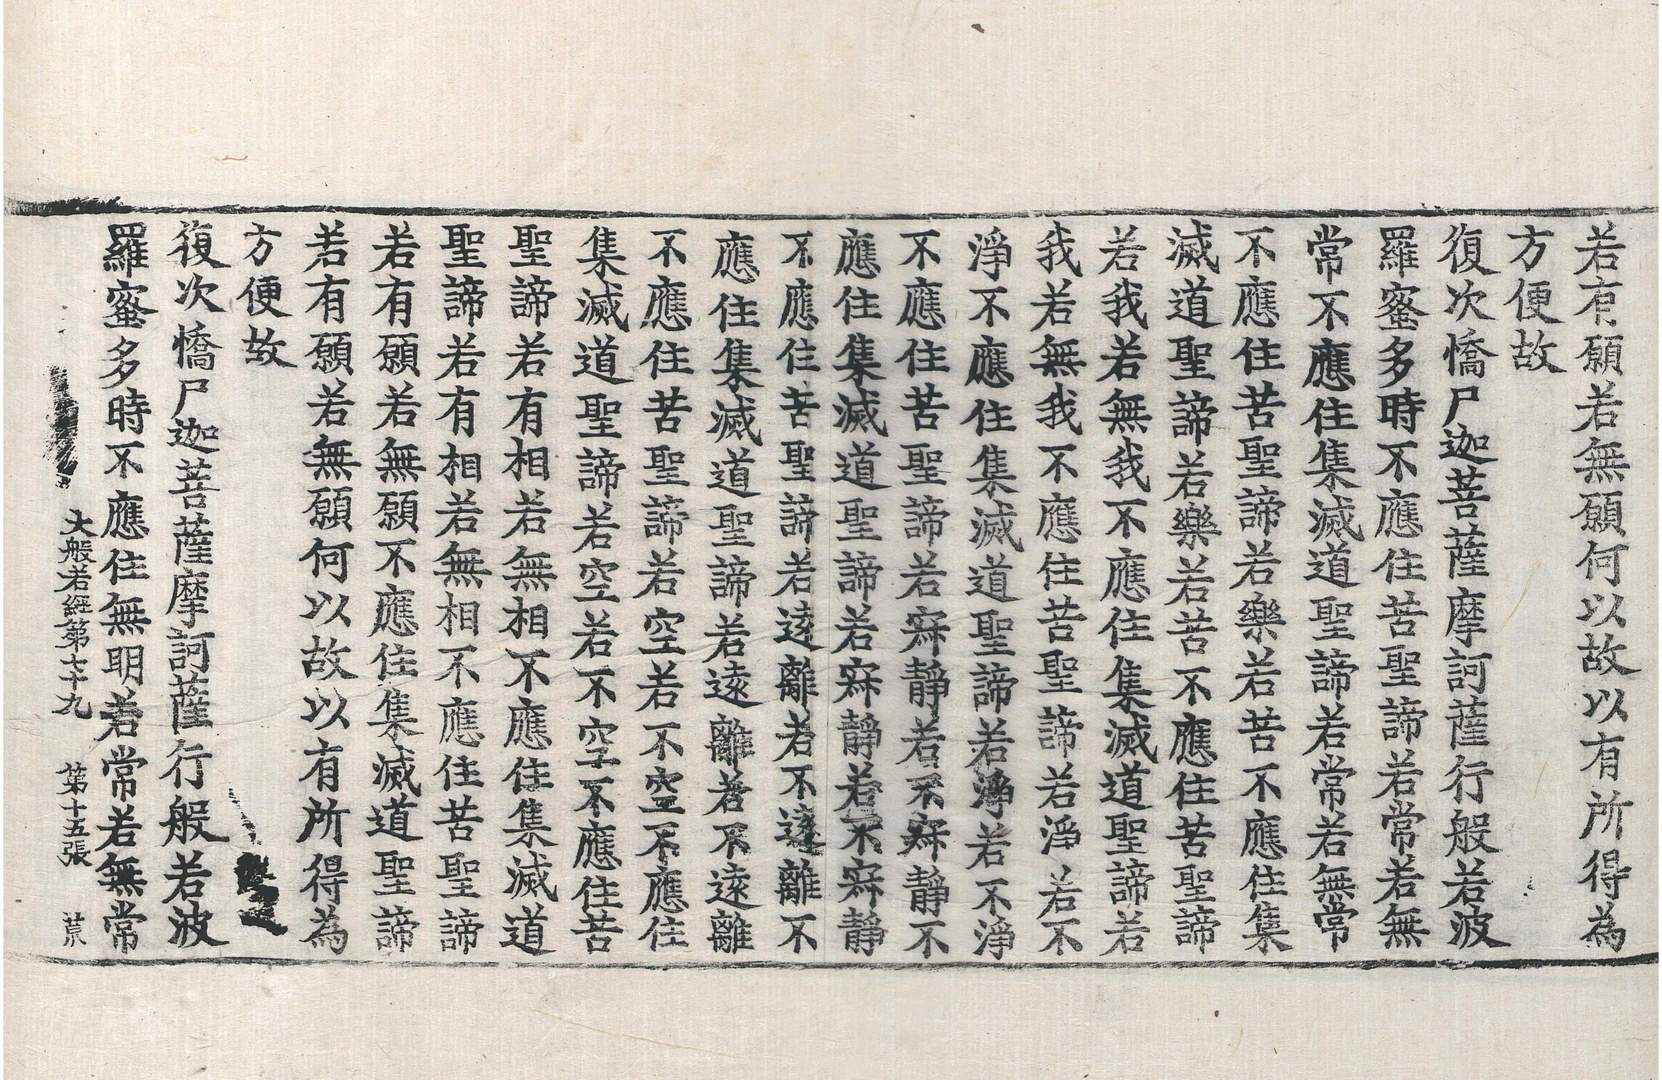 若有願若無願何以故以有所得為
方便故
復次憍尸迦菩薩摩訶薩行般若波
羅蜜多時不應住苦聖諦若常若無
常不應住集滅道聖諦若常若無常
不應住苦聖諦若樂若苦不應住集
滅道聖諦若樂若苦不應住苦聖諦
若我若無我不應住集滅道聖諦若
我若無我不應住苦聖諦若淨若不
淨不應住集滅道聖諦若淨若不淨
不應住苦聖諦若寂靜若不寂靜不
應住集滅道聖諦若寂靜若不寂靜
不應住苦聖諦若遠離若不遠離不
應住集滅道聖諦若遠離若不遠離
不應住苦聖諦若空若不空不應住
集滅道聖諦若空若不空不應住苦
聖諦若有相若無相不應住集滅道
聖諦若有相若無相不應住苦聖諦
若有願若無願不應住集滅道聖諦
若有願若無願何以故以有所得為
方便故
復次憍尸迦菩薩摩訶薩行般若波
羅蜜多時不應住無明若常若無常
大般若經第七十九 第十五張 荒